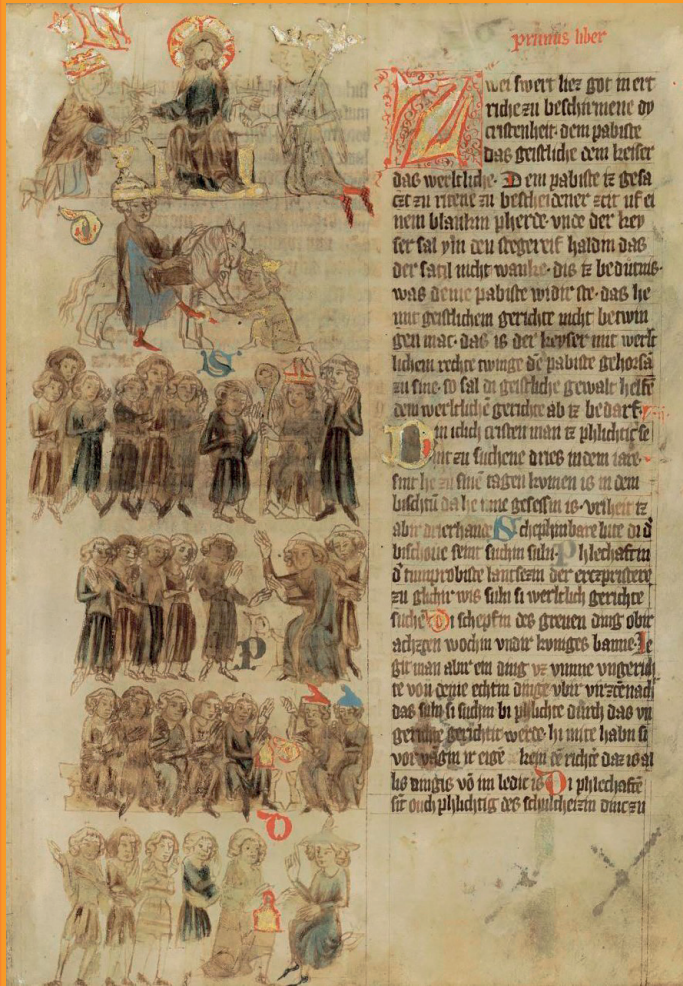 primus liber
Zwei swert liez got in ert
riche zu beschirmene dy
cristenheit· dem pabiste
das geistliche dem keiser
das werltliche· Dem pabiste iz gesa
czt zu ritene zu bescheidener zcit uf ei
nem blankin pherde· vnde der key
ser sal ym den stegereif haldin das
der satil nicht wanke· dis iz bedutnis·
was deme pabiste widir ste· das he
mit geistlichem gerichte nicht betwin
gen mac· das is der keyser mit werlt
lichem rechte twinge dē pabiste gehorsā
zu sine· so sal di geistliche gewalt helfē
dem werltlichē gerichte ab iz bedarf·
Ein iclich cristen man iz phlichtic se
nt zu suchene dries in dem iare·
sint he zu sinē tagen kumen is in dem
bischtū da he inne gesessin is· vriheit iz
abir drierhande Schephinbare lute di d'
bischoue senit suchin suln· Phlechaftin
d' tumprobiste lantsezin der erczpristere
zu glichir wis suln si werltlich gerichte
suchē Di schepfin des greuen ding obir
achzen wochin vndir kuniges banne· Le
git man abir ein ding vz vmme vngerich
te von deme echtin dinge vbir virzcēnach
das suln si suchin bi phlichte durch das vn
gerichte gerichtit werde· hi mite habn si
vorvāgin ir eigē kein dē richtē daz is al
lis dingis vō im ledic is Di phlechaftē
sīt ouch phlichtig des schultheizin dinc zu
S
P
D